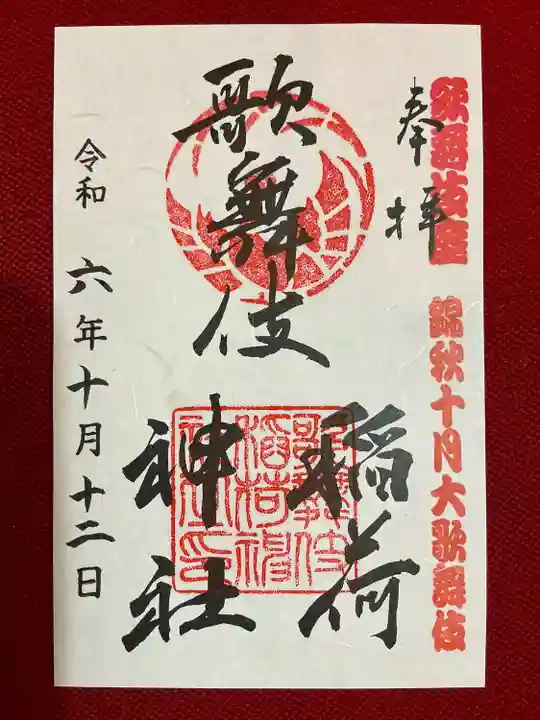 歌舞伎座 錦秋十月大歌舞伎
奉拝
歌舞伎
稲荷
神社
歌舞伎
稲荷神
社之印
令和 六年十月十二日